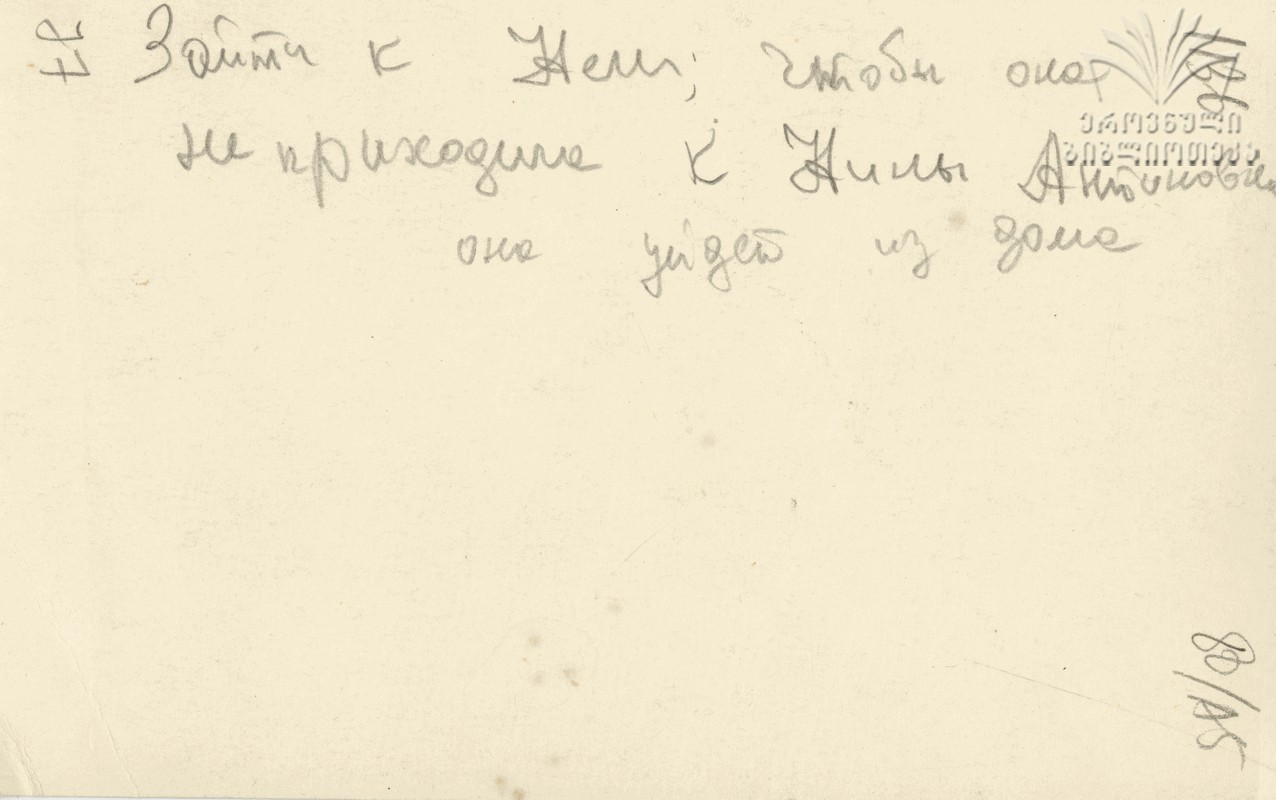 Зайти к Нели, чтобы она
не приходила к Нины Антиновны
она уйдет из дома
ეროვნული
ბიბლიოთეკა
80/А5